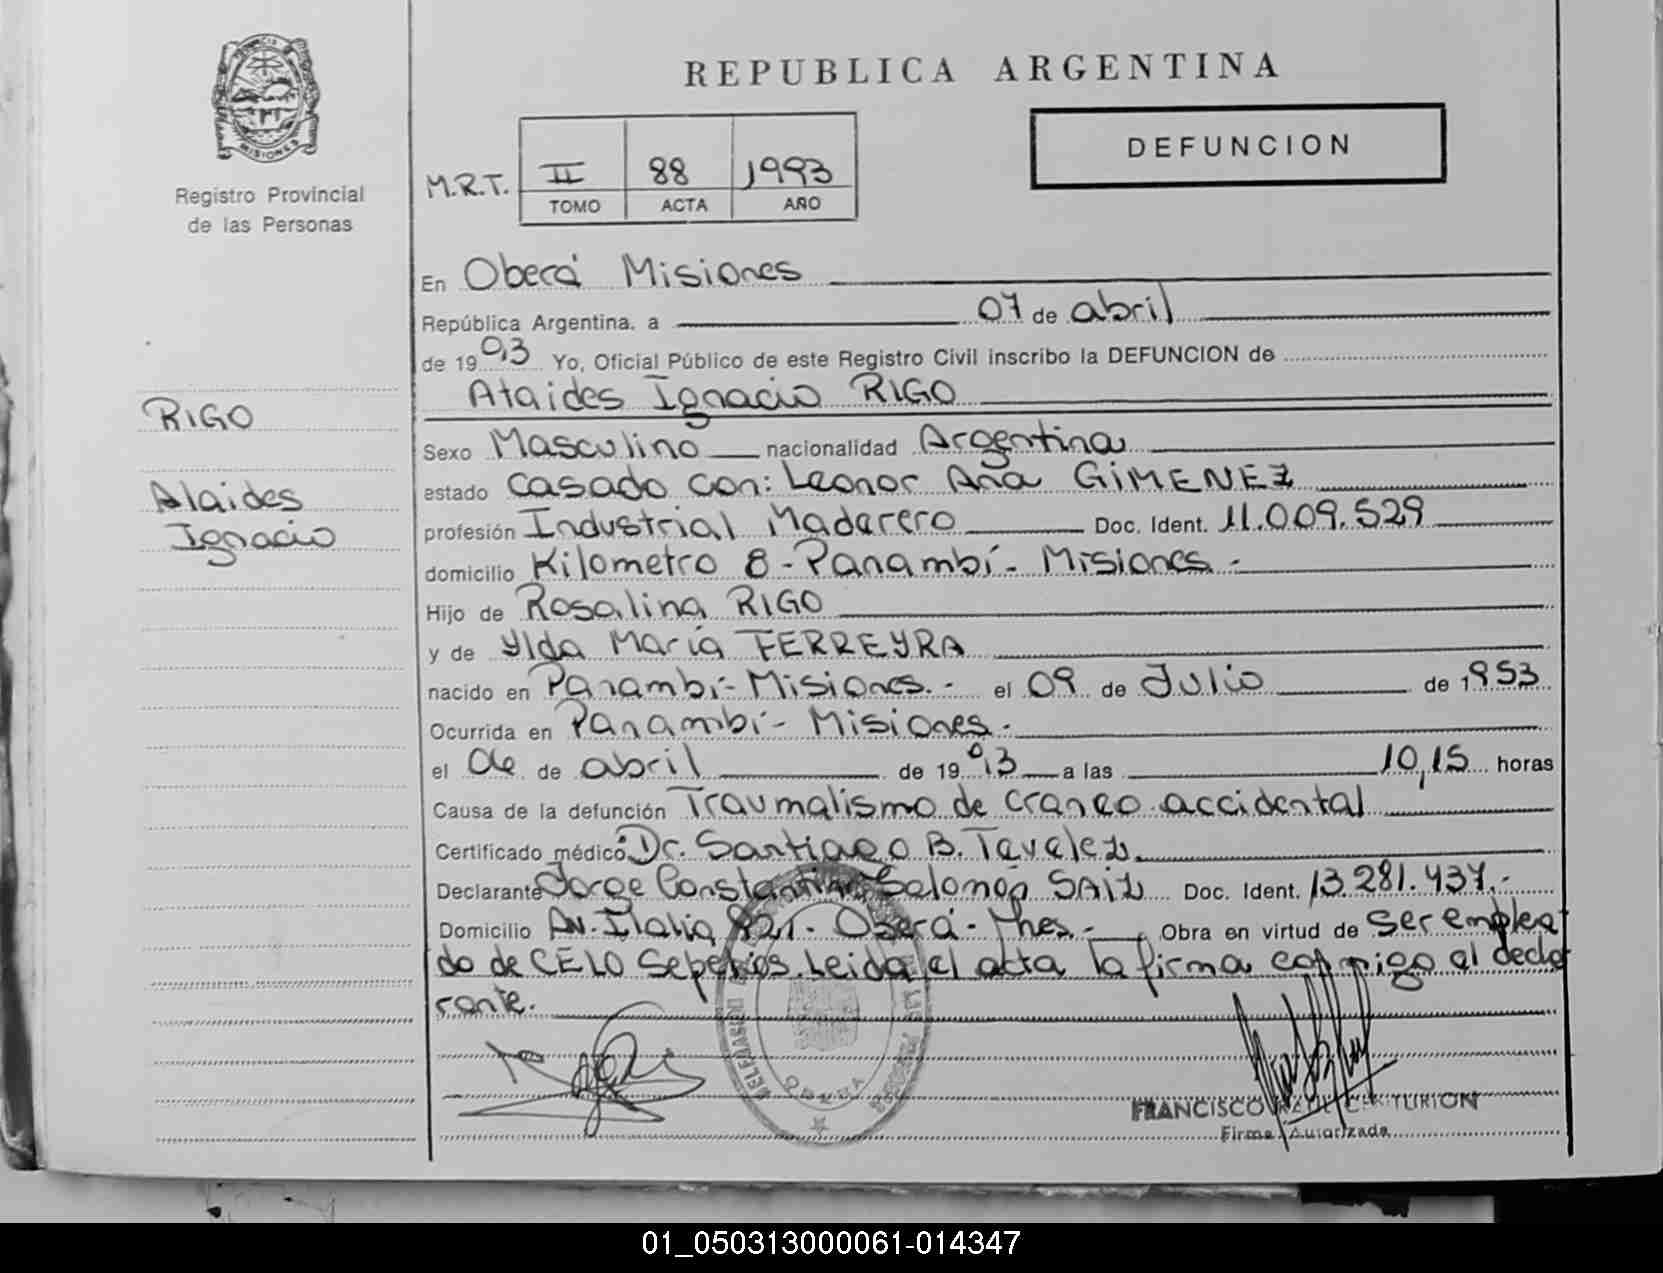 PROVINCIA DE
MISIONES
Registro Provincial
de las Personas
RIGO
Alaides
Ignacio
REPUBLICA ARGENTINA
DEFUNCION
M.R.T. II 88 1993
TOMO ACTA AÑO
En Oberá Misiones
República Argentina, a 07 de abril
de 1993 Yo, Oficial Público de este Registro Civil inscribo la DEFUNCION de
Ataides Ignacio RIGO
Sexo Masculino nacionalidad Argentina
estado casado con: Leonor Ana GIMENEZ
profesión Industrial Maderero Doc. Ident. 11.009.529
domicilio Kilometro 8 - Panambí - Misiones -
Hijo de Rosalina RIGO
y de Ylda María FERREYRA
nacido en Panambí - Misiones. - el 09 de Julio de 1953
Ocurrida en Panambí - Misiones -
el 06 de abril de 1993 a las 10,15 horas
Causa de la defunción Traumatismo de craneo accidental
Certificado médico Dr. Santiago B. Tavelez.
Declarante Jorge Constantino Salomón SAIZ Doc. Ident. 13.281.437.-
Domicilio Av. Italia 821 - Oberá - Mnes.- Obra en virtud de ser emplea
do de CELO Sepelios. Leida el acta la firma conmigo el decla
rante.
OBERA
FRANCISCO RAUL CENTURION
Firma Autorizada
01_050313000061-014347